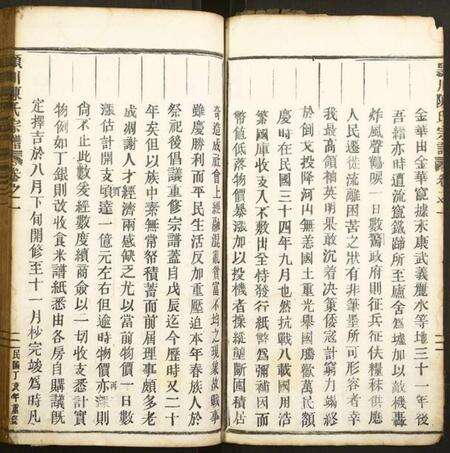 潁川陳氏宗譜
金華由金華竄據永康武義麗水等地三十一年後
吾縉亦時遭流竄鐵蹄所至廬舍為墟加以敵機轟
炸風聲鶴唳一日數驚政府則征兵征伕糧秣供應
人民遷徙流離困苦之狀有非筆墨所可形容者幸
我最高領袖英明果敢沉着決策倭寇計窮力竭終
於倒戈投降河山無恙國土重光舉國騰歡萬民額
慶時在民國三十四年九月也然抗戰八載國用浩
繁國庫收支入不敷出全恃發行紙幣為彌補因而
幣值低落物價暴漲加以投機者操縱壟斷囤積居
奇造成社會上經融混亂貧富不均之現象故戰事
雖慶勝利而平民生活反加重壓迫本年春族人於
祭祀後倡議重修宗譜蓋自戊辰迄今歷時又二十
年矣但以族中素無常帑積蓄而前屆理事頗多老
成凋謝人才經濟兩感缺乏尤以當前物價一日數
漲估計開支須達一億元左右但逾時物價亦漲則
尚不止此數爰經數度續商僉以一切收支悉計實
物例如丁銀則改收食米譜紙悉由各房自購議旣
定擇吉於八月下旬開修至十一月杪完竣為時凡
潁川陳氏宗譜 卷之一
民國丁亥年重修